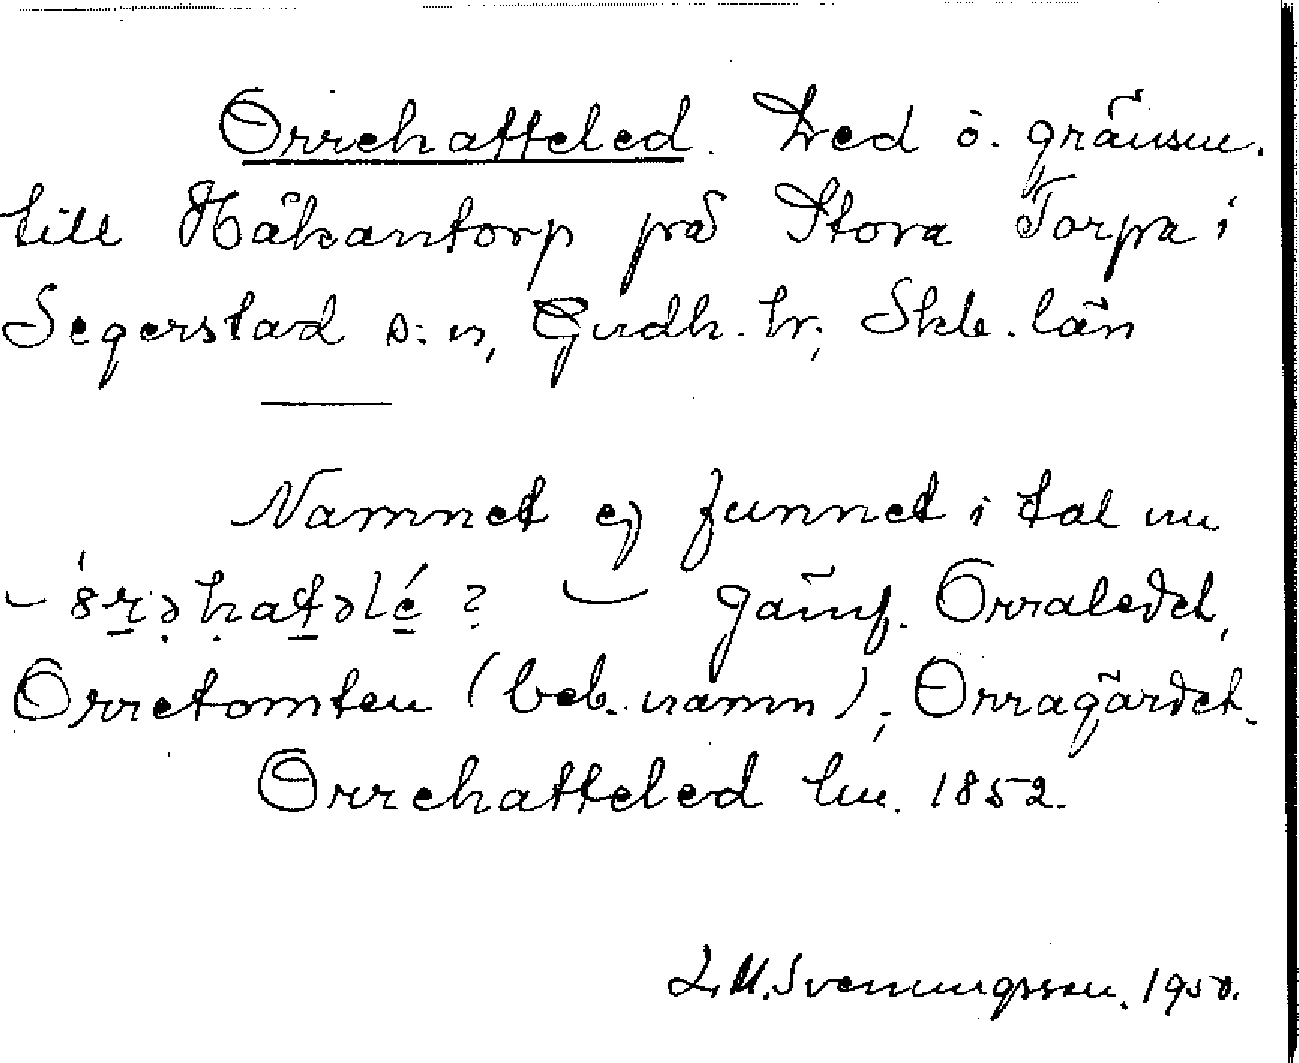 Orrehatteled. Led ö. gränsen.
till Håkantorp på Stora Torpa i
Segerstad s:n, Gudh. hr; Skb. län
Namnet ej funnet i tal nu
Jämf. Orraledet,
Orretomten (beb.namn); Orragärdet.
Orrehatteled lm. 1852.
L.M.Svenungsson. 1950.